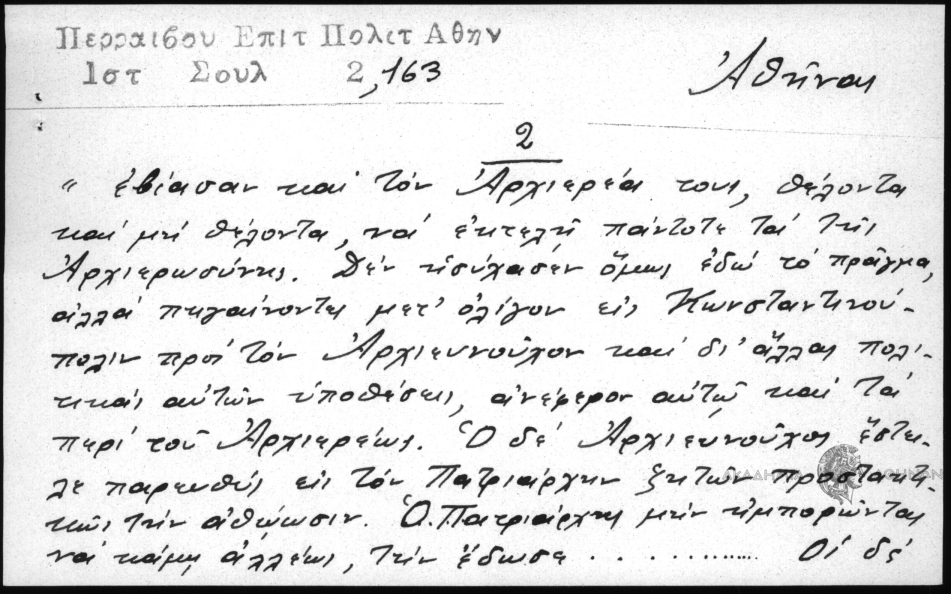 Περραιβου Επιτ Πολιτ Αθην
Ιστ Σουλ 2,163
Ἀθῆναι
2
" ἐβίασαν καὶ τὸν Ἀρχιερέα τους, θέλοντα
καὶ μὴ θέλοντα, νὰ ἐκτελῇ πάντοτε τὰ τῆς
Ἀρχιερωσύνης. Δὲν ἡσύχασεν ὅμως ἐδῶ τὸ πρᾶγμα,
ἀλλὰ πηγαίνοντες μετ' ὀλίγον εἰς Κωνσταντινού-
πολιν πρὸς τὸν Ἀρχιευνοῦχον καὶ δι' ἄλλας πολι-
τικὰς αὐτῶν ὑποθέσεις, ἀνέφερον αὐτῷ καὶ τὰ
περὶ τοῦ Ἀρχιερέως. Ὁ δὲ Ἀρχιευνοῦχος ἔστει-
λε παρευθὺς εἰς τὸν Πατριάρχην ζητῶν προστακτι-
κῶς τὴν ἀθώωσιν. Ὁ Πατριάρχης μὴν ἠμπορῶντας
νὰ κάμῃ ἀλλέως, τὴν ἔδωσε ............ Οἱ δὲ
ΑΚΑΔΗΜΙΑ ΑΘΗΝΩΝ